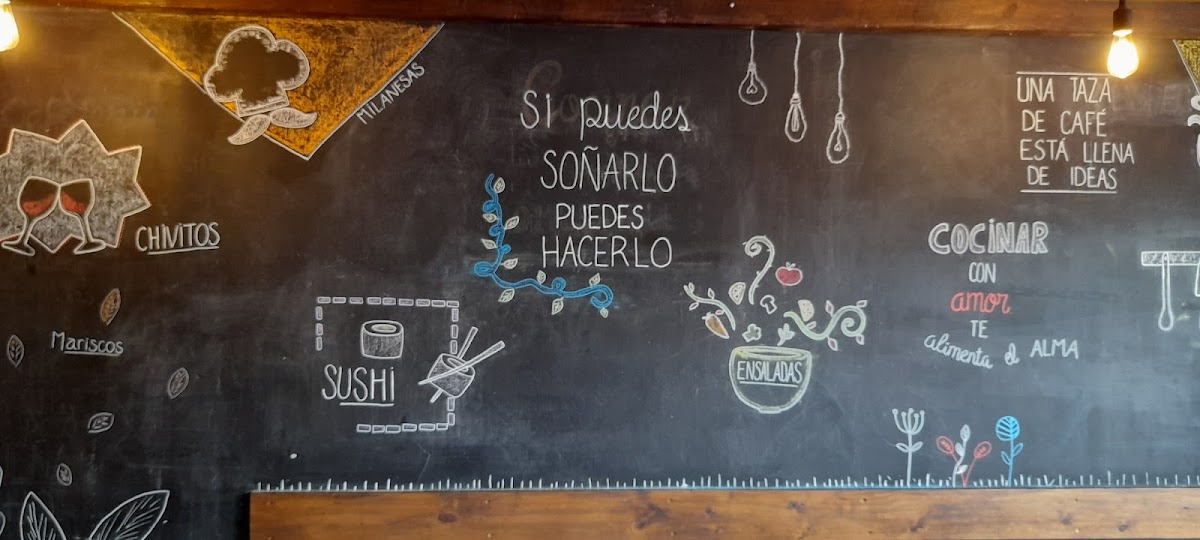 MILANESAS
CHIVITOS
Mariscos
SUSHi
Si puedes
SOÑARLO
PUEDES
HACERLO
ENSALADAS
UNA TAZA
DE CAFÉ
ESTÁ LLENA
DE IDEAS
COCiNAR
CON
amor
TE
alimenta el ALMA